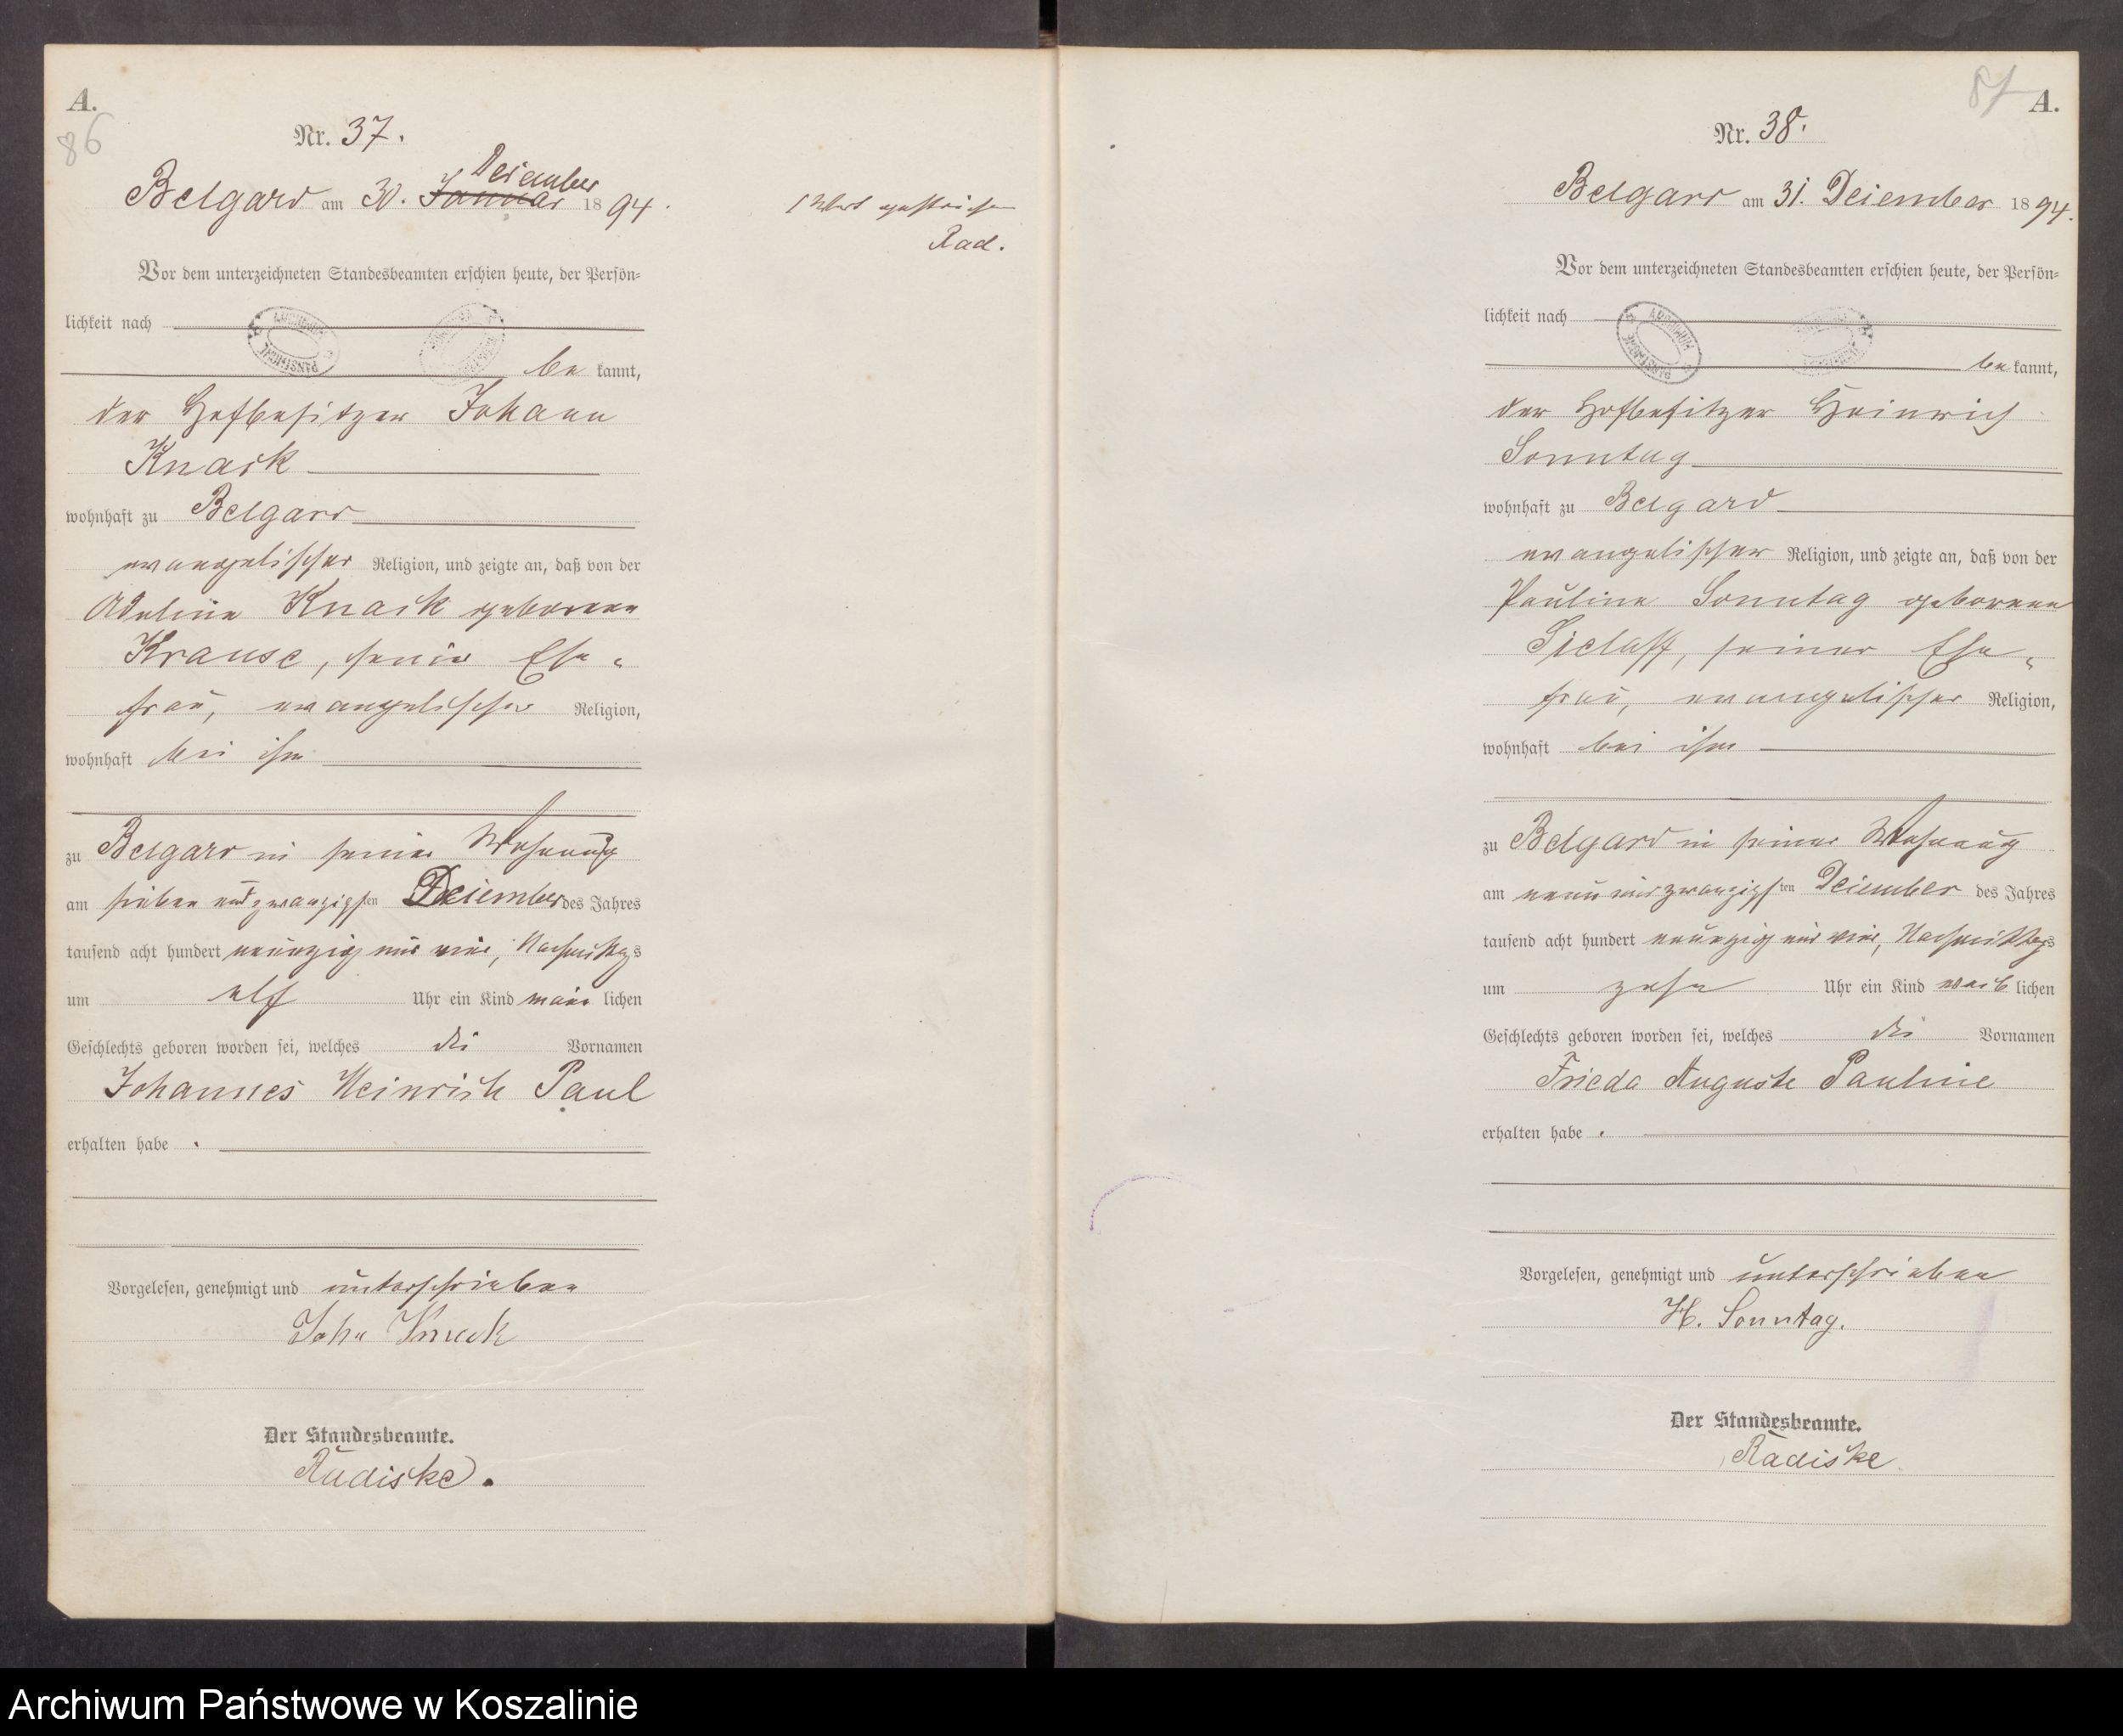 A.
86
Nr. 37.
Belgard am 30. Januar Dezember 1894.
1 Wort gestrichen
Rad.
Vor dem unterzeichneten Standesbeamten erschien heute, der Persön=
lichkeit nach
be kannt,
der Hofbesitzer Johann
Knack
wohnhaft zu Belgard
evangelischer Religion, und zeigte an, daß von der
Adeline Knack geborene
Krause, seiner Ehe-
frau, evangelischer Religion,
wohnhaft bei ihm
zu Belgard in seiner Wohnung
am sieben und zwanzigsten Dezember des Jahres
tausend acht hundert neunzig und vier, Nachmittags
um elf Uhr ein Kind männlichen
Geschlechts geboren worden sei, welches die Vornamen
Johannes Heinrich Paul
erhalten habe.
Vorgelesen, genehmigt und unterschrieben
Joh. Knack
Der Standesbeamte.
Radiske.
87 A.
Nr. 38.
Belgard am 31. Dezember 1894.
Vor dem unterzeichneten Standesbeamten erschien heute, der Persön=
lichkeit nach
be kannt,
der Hofbesitzer Heinrich
Sonntag
wohnhaft zu Belgard
evangelischer Religion, und zeigte an, daß von der
Pauline Sonntag geborene
seiner Ehe-
frau, evangelischer Religion,
wohnhaft bei ihm
zu Belgard in seiner Wohnung
am neun und zwanzigsten Dezember des Jahres
tausend acht hundert neunzig und vier, Nachmittags
um zehn Uhr ein Kind weiblichen
Geschlechts geboren worden sei, welches die Vornamen
Frieda Auguste Pauline
erhalten habe.
Vorgelesen, genehmigt und unterschrieben
H. Sonntag.
Der Standesbeamte.
Radiske
Archiwum Państwowe w Koszalinie